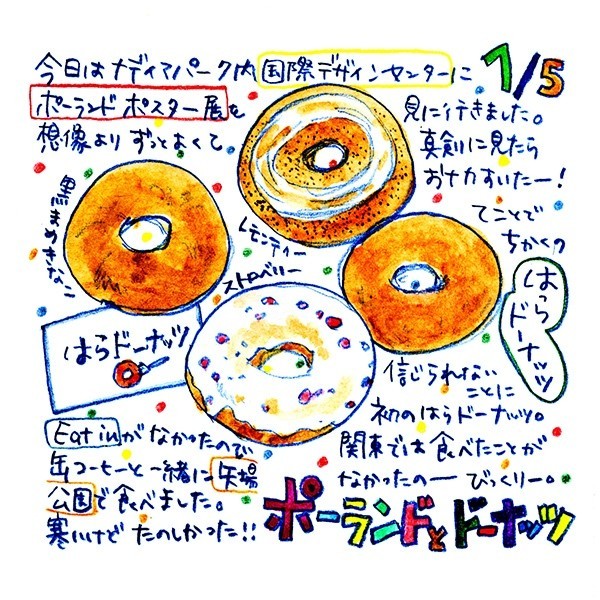 今日はナディアパーク内国際デザインセンターに
ポーランドポスター展を
想像よりずっとよくて
1/5
見に行きました。
真剣に見たら
おナカすいたー!
てことで
ちかくの
はら
ドーナッツ
黒まめきなこ
レモンティー
ストロベリー
はらドーナッツ
信じられない
ことに
初のはらドーナッツ。
関東では食べたことが
なかったのー びっくりー。
Eat inがなかったので
缶コーヒーと一緒に矢場
公園で食べました。
寒いけどたのしかった!!
ポーランドとドーナッツ